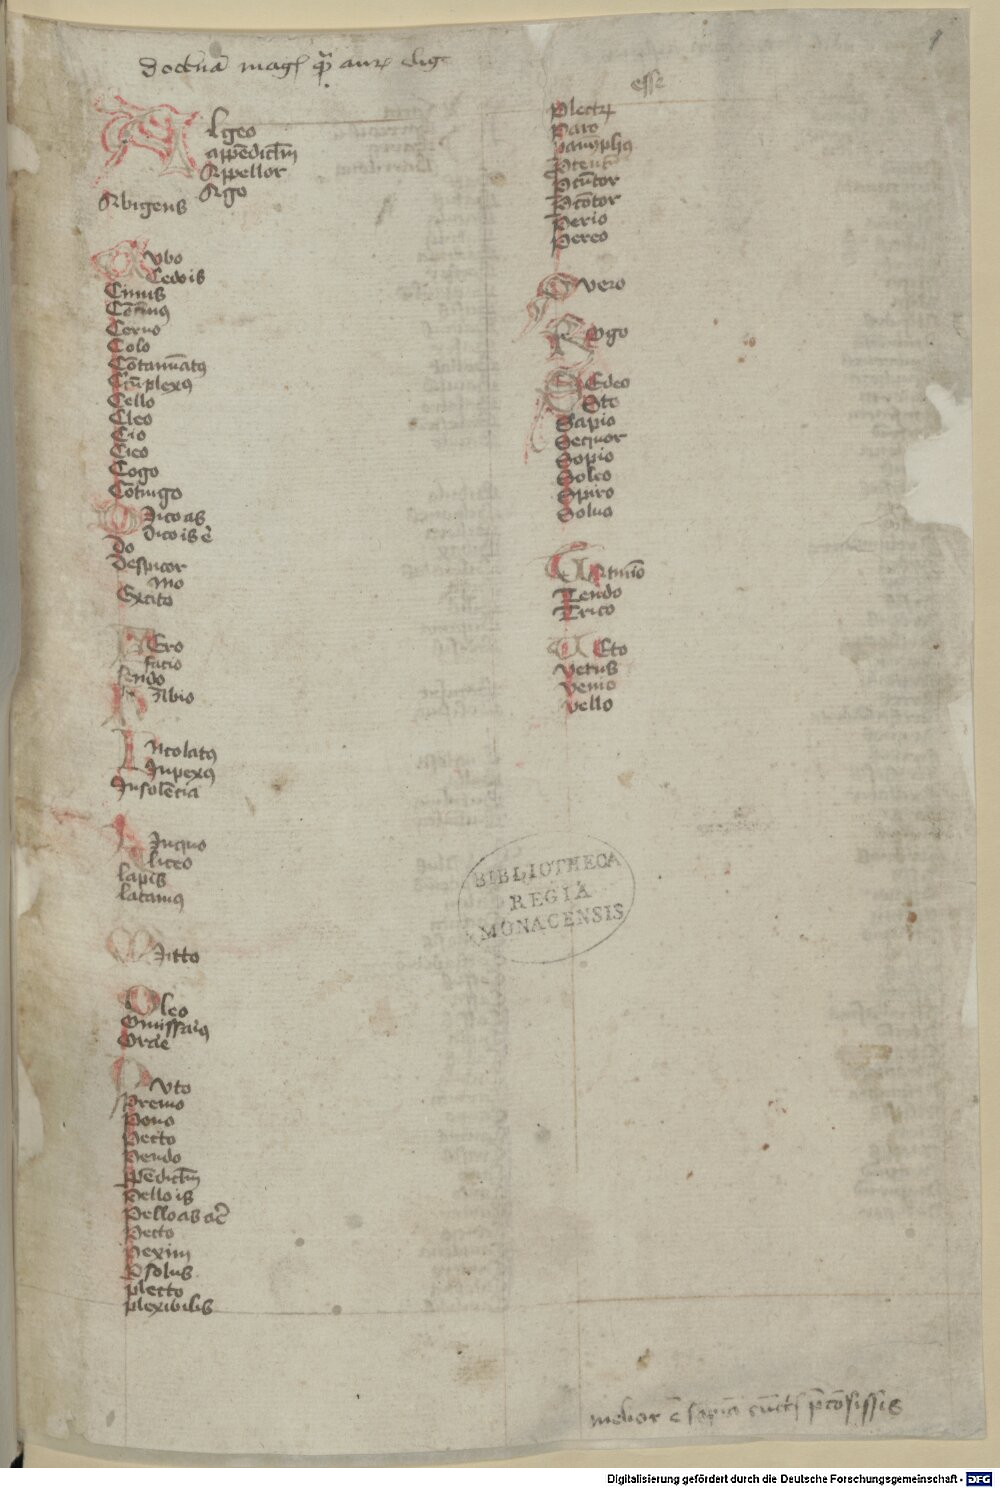 1
doctnā magꝭ qᷓ aurꝫ elige
esse
Algeo
appēdictm̄
Appellor
Ago
Abigens
Cubo
Cedo is
Cinis
Cōminꝯ
Cerno
Colo
Cōtamīatꝯ
Cō̄plexꝯ
Cello
Cleo
Cio
Cieo
Cogo
Cōtingo
Dico as
dico is ē
do
despicor
Emo
Excito
Fero
facio
fendo
Hābio
Incolatꝯ
Inpexꝯ
Insolētia
Linquo
liceo
lapis
latamꝯ
Mitto
Oleo
Omissarꝯ
Orde
Puto
Premo
Pono
Pecto
Pendo
ppēdictm̄
Pello is
Pello as ac̄
Pecto
Pexim
Psolus
plecto
plexibilis
Plectꝝ
Paro
pamphꝯ
Pcūtor
Pcōtor
Perio
Pereo
Quero
Rogo
Sedeo
Sto
Sapio
Sequor
Sopio
Soleo
Spiro
Solua
Tendo
Trico
Veto
Vetus
venio
vello
BIBLIOTHECA
REGIA
MONACENSIS
melior ē sapiā cūctꝭ p̄cōsissis
Digitalisierung gefördert durch die Deutsche Forschungsgemeinschaft - DFG